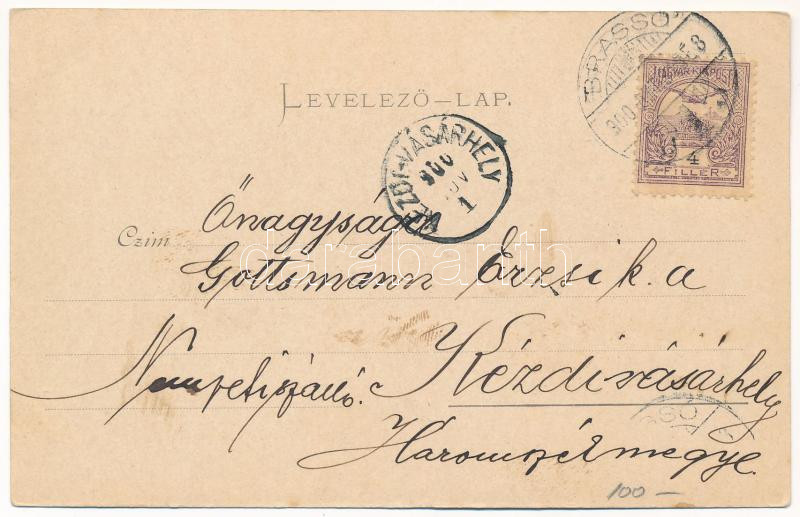 BRASSÓ
900
MAGYAR KIR. POSTA
4
FILLÉR
LEVELEZŐ–LAP.
KÉZDI-VÁSÁRHELY
900
NOV
1
Czim
Őnagysága
Gottsmann Erzsi k. a
darabanth
Nemzetiszálló. Kézdivásárhely
Haromszékmegye.
100 –